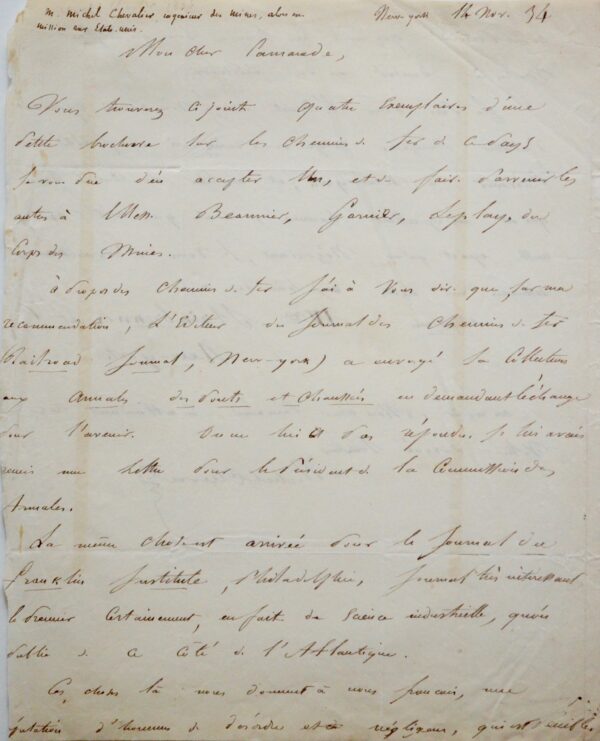 M. Michel Chevalier ingénieur des mines, alors en
mission aux Etats-unis.
New-york 14 Nov. 34
Mon cher Camarade,
Vous trouverez ci joint quatre exemplaires d'une
petite brochure sur les chemins de fer de ce pays
Je vous prie d'en accepter un, et de faire parvenir les
autres à MM. Beaunier, Garnier, Leplay, du
Corps des Mines.
à propos des chemins de fer j'ai à vous dire que, sur ma
recommandation, L'Editeur du Journal des chemins de fer
(Railroad Journal, New-york) a envoyé sa collection
aux Annales des ponts et chaussées en demandant l'échange
pour l'avenir. On ne lui a pas répondu. Je lui avais
remis une lettre pour le Président de la Commission des
Annales.
La même chose est arrivée pour le Journal du
Franklin Institute, Philadelphie, journal très intéressant
le premier certainement, en fait de science industrielle, qui se
publie de ce côté de l'Atlantique.
Ces choses là nous donnent à nous français, une
réputation d'hommes de désordre et négligens, qui est